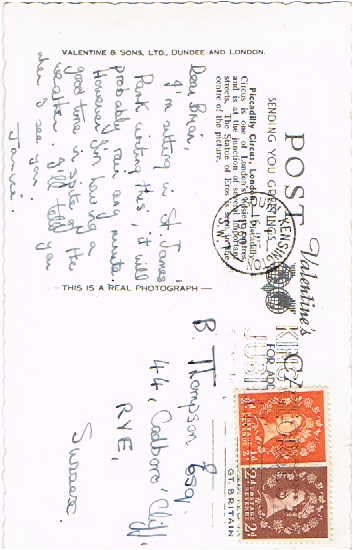 VALENTINE & SONS, LTD., DUNDEE AND LONDON.
POST
Valentine's
SENDING YOU GREETINGS
Piccadilly Circus, London.—Piccadilly
Circus is one of London's busiest centres
and is at the junction of several important
streets. The Statue of Eros is seen in the
centre of the picture.
Dear Brian,
I'm sitting in St James'
Park writing this, it will
probably rain any minute.
However I'm having a
good time in spite of the
weather. I'll tell you
when I see you.
KENSING
S.W.
— THIS IS A REAL PHOTOGRAPH —
B. Thompson Esq.
44, Cadboro' Cliff,
RYE,
Sussex
GT. BRITAIN